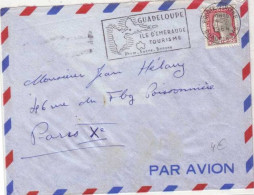 GUADELOUPE
ILE D'EMERAUDE
TOURISME
Monsieur Jean Hélary
46 rue du Fbg Poissonnière
Paris Xe
PAR AVION